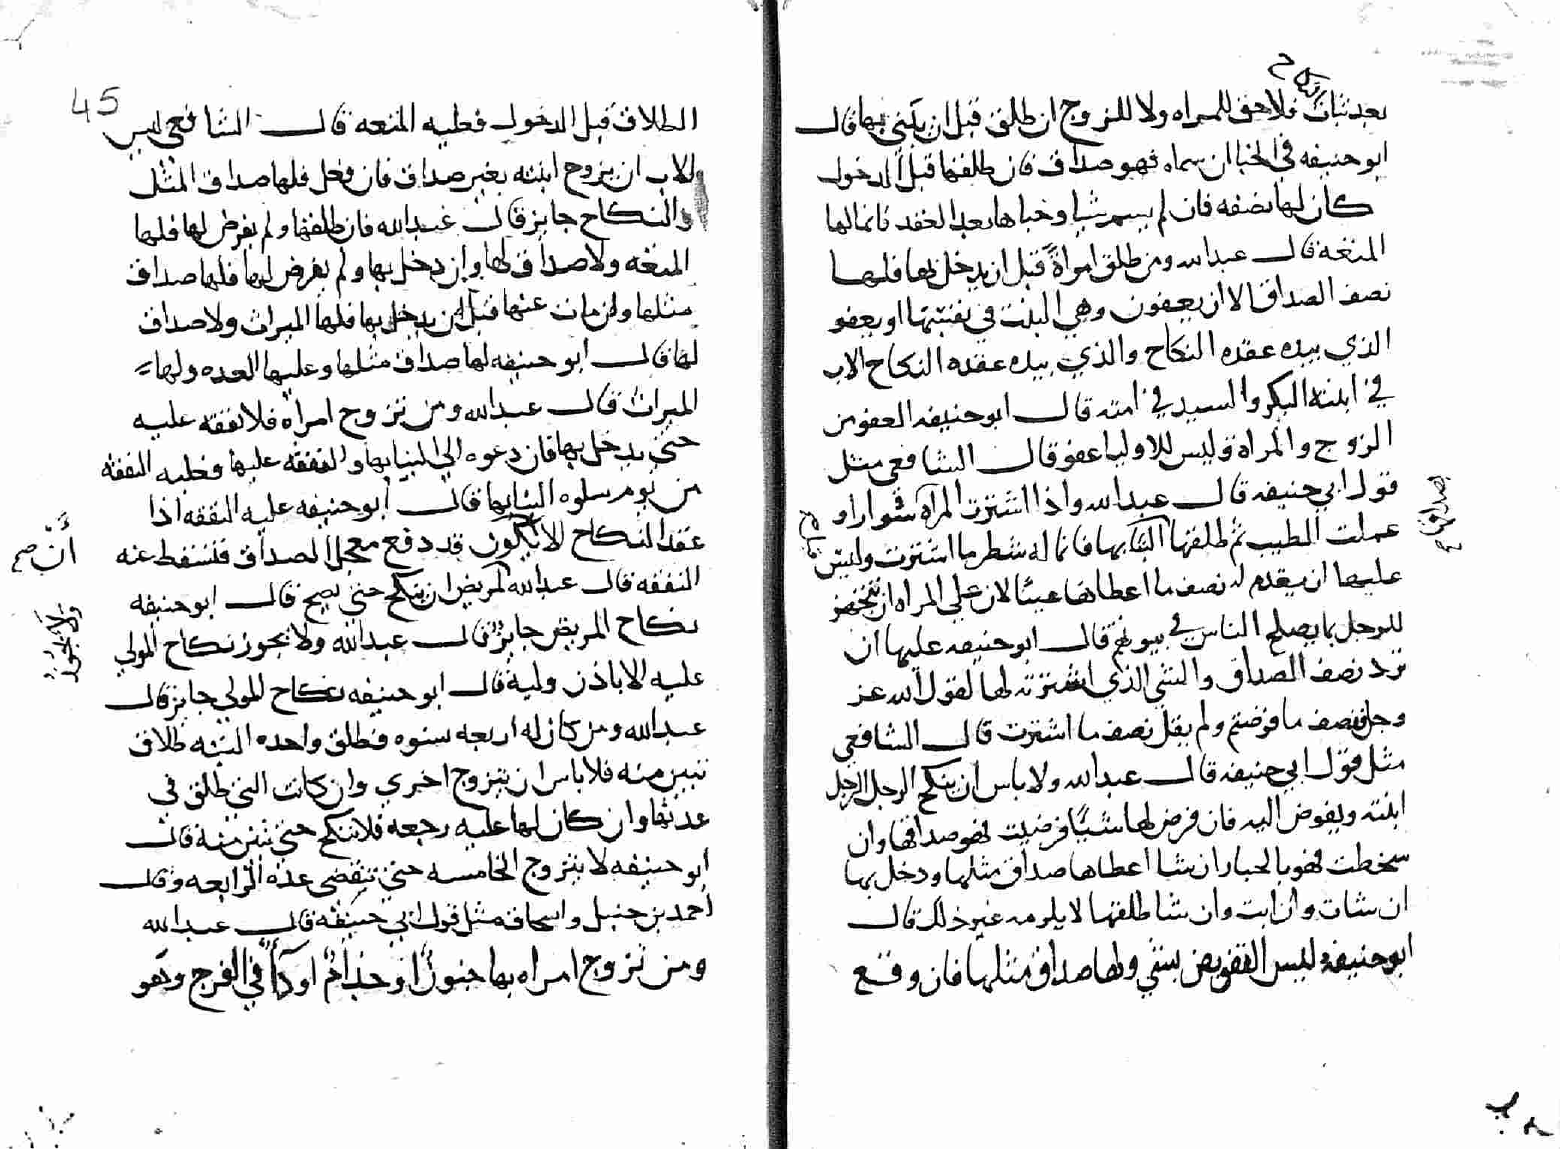 بعد ثبات فلا حق للمراه ولا للزوج ان طلق قبل ان يبني بها قال
ابو حنيفه في الخبا ان سماه فهو صداق فان طلقها قبل الدخول
كان لها نصفه فان لم يسم شيا وخباها بعد العقد فانما لها
المتعه قال عبد الله ومن طلق امراة قبل ان يدخل بها فلها
نصف الصداق الا ان يعفون وهي البنت في نفسها او يعفو
الذي بيده عقده النكاح والذي بيده عقده النكاح الاب
في ابنته البكر والسيد في امته قال ابو حنيفه العفو من
الزوج والمراة وليس للاوليا عفو قال الشافعي مثل
قول ابي حنيفه قال عبد الله واذا اشترت المراه شوارا او
عملت الطيب ثم طلقها البنا بها فانما له شطر ما اشترت وليس
عليها ان يقدم له نصف ما اعطاها عينا لان علي المراه ان تتجهز
للرجل بما يصلح الناس في بيوتهم قال ابو حنيفه عليها ان
ترد نصف الصداق والشي الذي اشترته لها لقول الله عز
وجل فنصف ما فرضتم ولم يقل نصف ما اشترت قال الشافعي
مثل قول ابي حنيفه قال عبد الله ولا باس ان ينكح الرجل الرجل
ابنته ويفوض اليه فان فرض لها شيئا فرضيت فهو صداقها وان
سخطت فهو بالخيار ان شا اعطاها صداق مثلها ودخل بها
ان شات وان ابت وان شا طلقها لا يلزمه غير ذلك قال
ابو حنيفه ليس التفويض بشي ولها صداق مثلها فان وقع
صداقها
45
الطلاق قبل الدخول فعليه المتعه قال الشافعي ليس
للاب ان يزوج ابنته بغير صداق فان فعل فلها صداق المثل
والنكاح جايز قال عبد الله فان طلقها ولم يفرض لها فلها
المتعه ولا صداق لها وان دخل بها ولم يفرض لها فلها صداق
مثلها وان مات عنها قبل ان يدخل بها فلها الميراث ولا صداق
لها قال ابو حنيفه لها صداق مثلها وعليها العده ولها
الميراث قال عبد الله ومن تزوج امراة فلا نفقه عليه
حتي يدخل بها فان دعوه الي البنا بها والنفقه عليها فعليه النفقه
من يوم سلوه البنا بها قال ابو حنيفه عليه النفقه اذا
عقد النكاح الا يكون قد دفع معجل الصداق فتسقط عنه
النفقه قال عبد الله لمريض ان ينكح حتي يصح قال ابو حنيفه
نكاح المريض جايز قال عبد الله ولا يجوز نكاح المولي
عليه الا باذن وليه قال ابو حنيفه نكاح المولي جايز قال
عبد الله ومن كان له اربعه نسوه فطلق واحده البته طلاق
تبين منه فلا باس ان يتزوج اخري وان كانت التي طلق في
عدتها وان كان لها عليه رجعه فلا ينكح حتي تبين منه قال
ابو حنيفه لا يتزوج الخامسه حتي تنقضي عده الرابعه وقال
احمد بن حنبل واسحاق مثل قول ابي حنيفه قال عبد الله
ومن تزوج امراه بها جنون او جذام او داء في الفرج وهو
ان صح
ولا يجوز